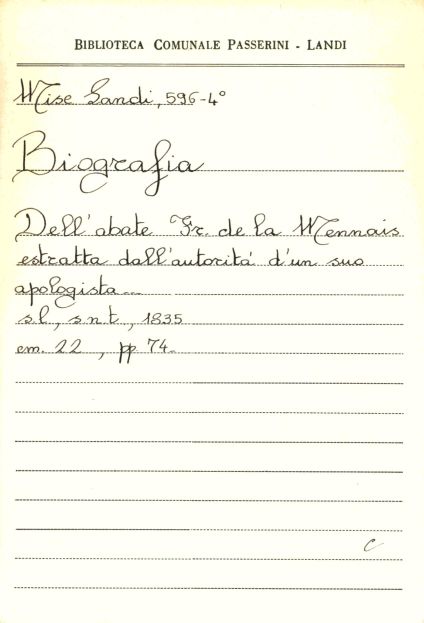 BIBLIOTECA COMUNALE PASSERINI - LANDI
Mise Landi, 596-4°
Biografia
Dell'abate Fr. de la Mennais
estratta dall'autorità d'un suo
apologista...
s.l., s.n.t., 1835
cm. 22, pp 74.
C